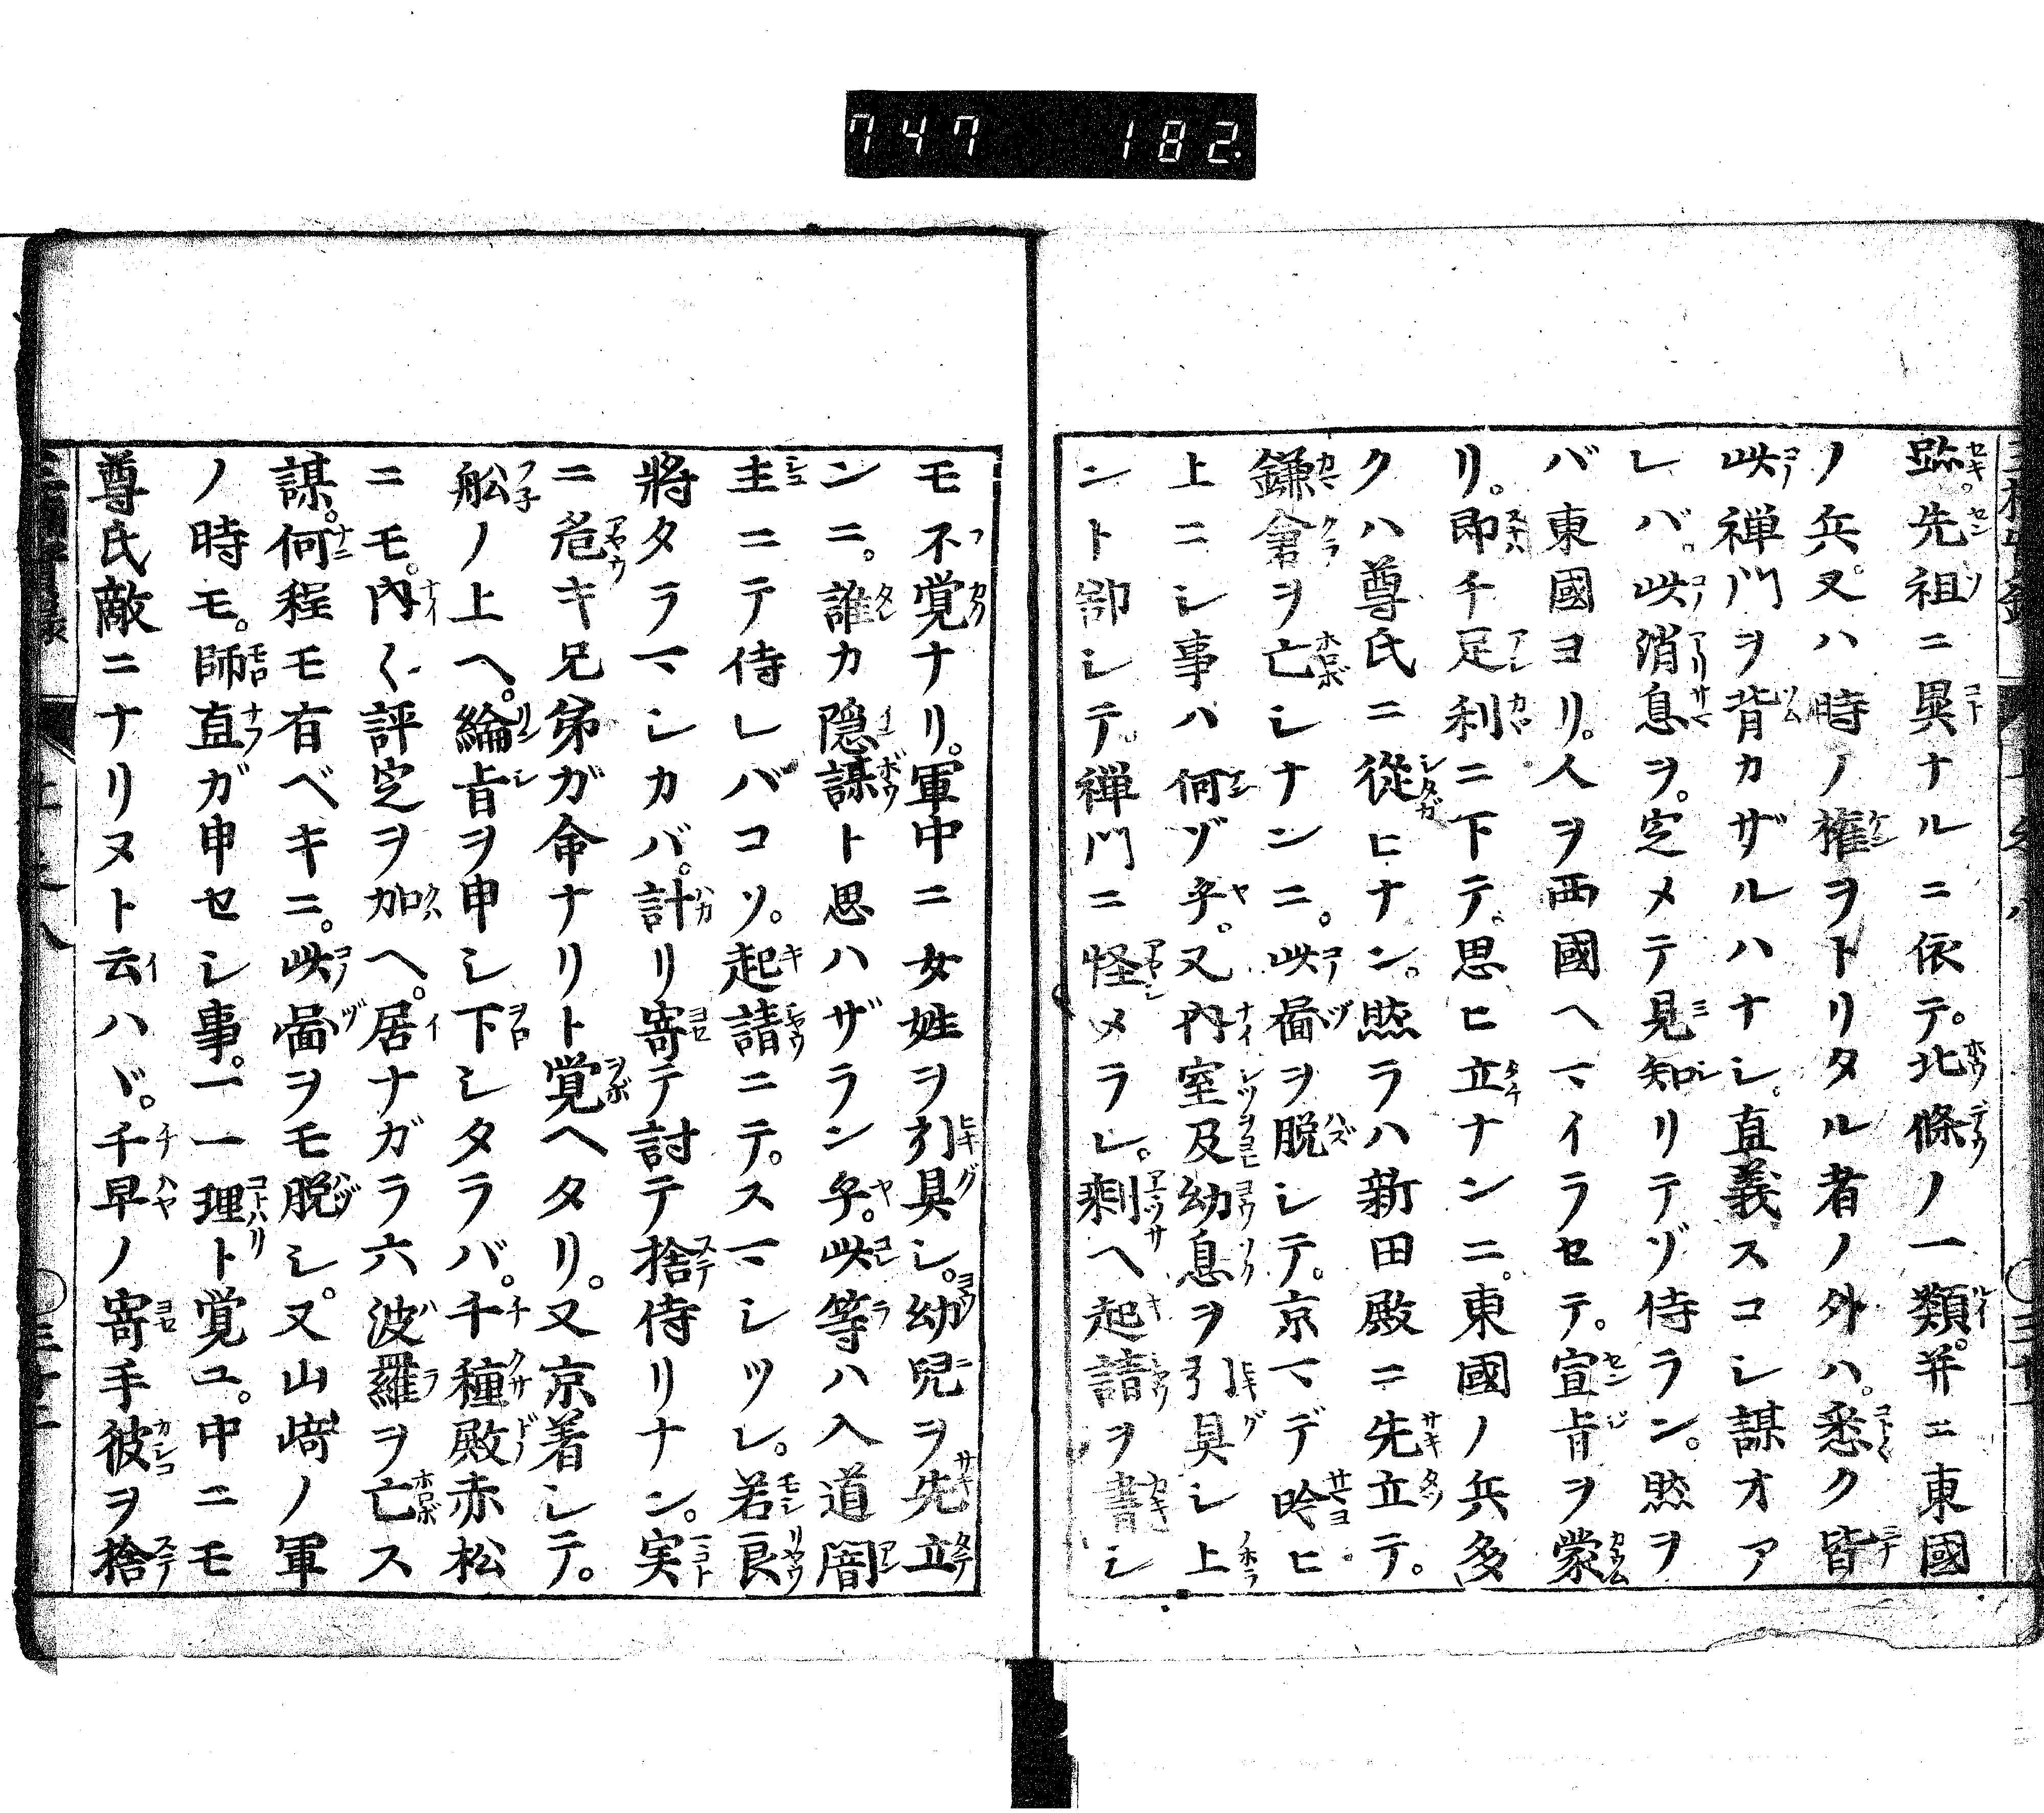 747 182.
跡。先祖ニ異ナルニ依テ。北條ノ一類。并ニ東國
ノ兵。又ハ時ノ権ヲトリタル者ノ外ハ。悉ク皆
此禅門ヲ背カザルハナシ。直義スコシ謀オア
レバ。此消息ヲ。定メテ見知リテゾ侍ラン。然ヲ
バ東國ヨリ。人ヲ西國ヘマイラセテ。宣旨ヲ蒙
リ。即チ足利ニ下テ。思ヒ立ナンニ。東國ノ兵多
クハ尊氏ニ從ヒナン。然ラハ新田殿ニ先立テ。
鎌倉ヲ亡シナンニ。此啚ヲ脱シテ。京マデ吟ヒ
上ニシ事ハ何ゾ乎。又内室及幼息ヲ引具シ上
ント卻シテ。禅門ニ怪メラレ。剰ヘ起請ヲ書シ
モ不覚ナリ。軍中ニ女姓ヲ引具シ。幼兒ヲ先立
ンニ。誰カ隠謀ト思ハザラン乎。此等ハ入道闇
主ニテ侍レバコソ。起請ニテ。スマシツレ。若良
將タラマシカバ。計リ寄テ討テ捨侍リナン。実
ニ危キ兄弟ガ命ナリト覚ヘタリ。又京着シテ。
舩ノ上ヘ。綸旨ヲ申シ下シタラバ。千種殿赤松
ニモ。内〻評定ヲ加ヘ。居ナガラ六波羅ヲ亡ス
謀。何程モ有ベキニ。此啚ヲモ脱シ。又山﨑ノ軍
ノ時モ。師直ガ申セシ事。一一理ト覚ユ。中ニモ
尊氏敵ニナリヌト云ハヾ。千早ノ寄手彼ヲ捨